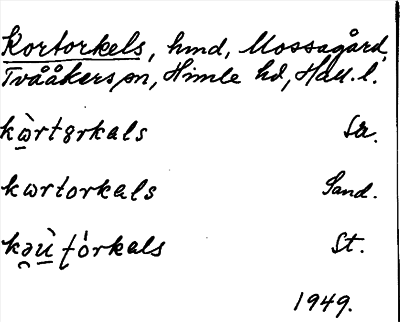 Kortorkels, hmd, Mossagård,
Tvååkers sn, Himle hd, Hall. l.
kɷ̀rtɜrkals Sr.
kɯrtorkals Sand.
kəu̇̀ tórkals St.
1949.